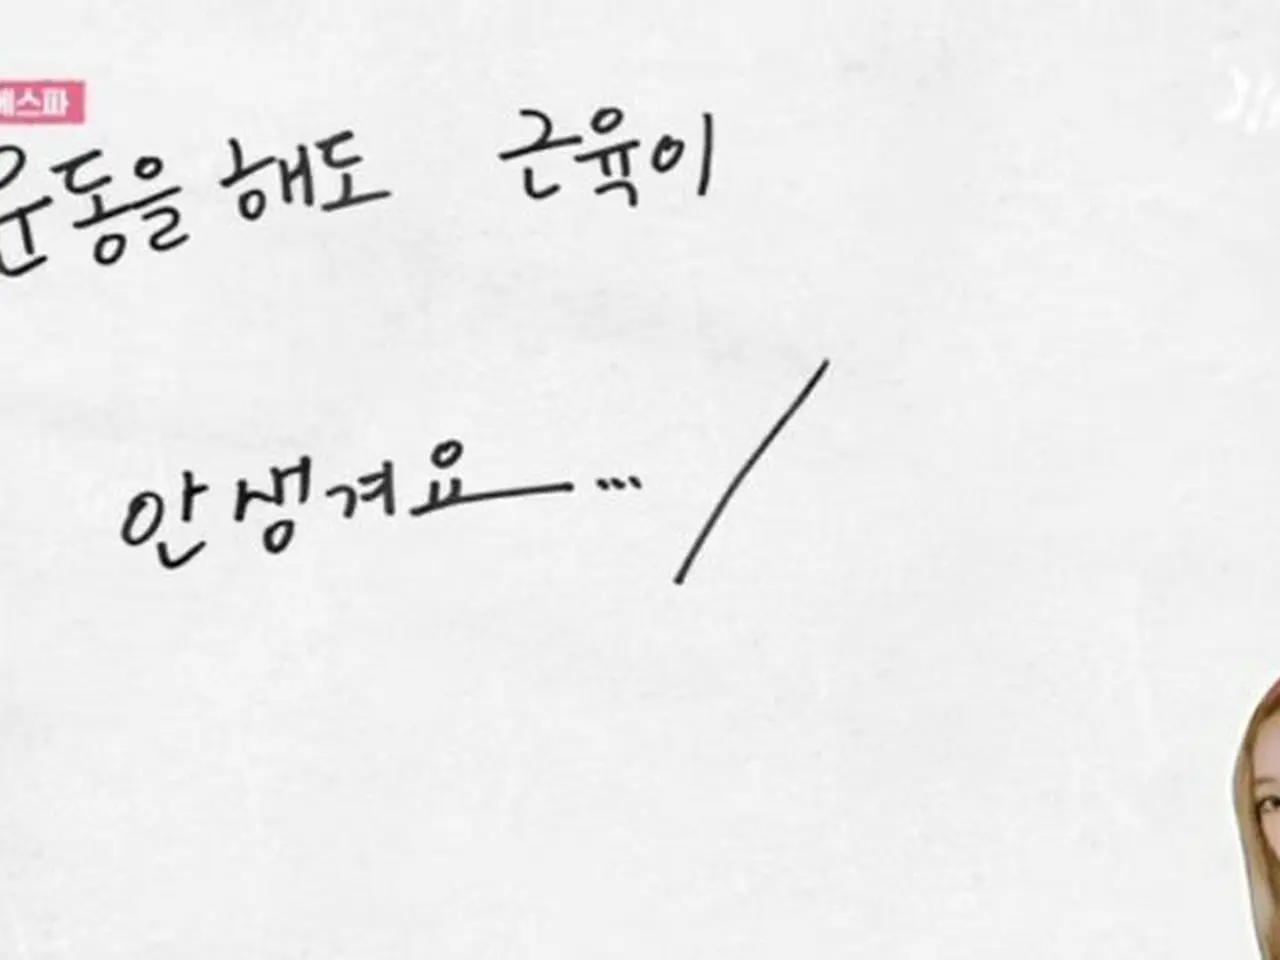 에스파
운동을 해도 근육이
안 생겨요...